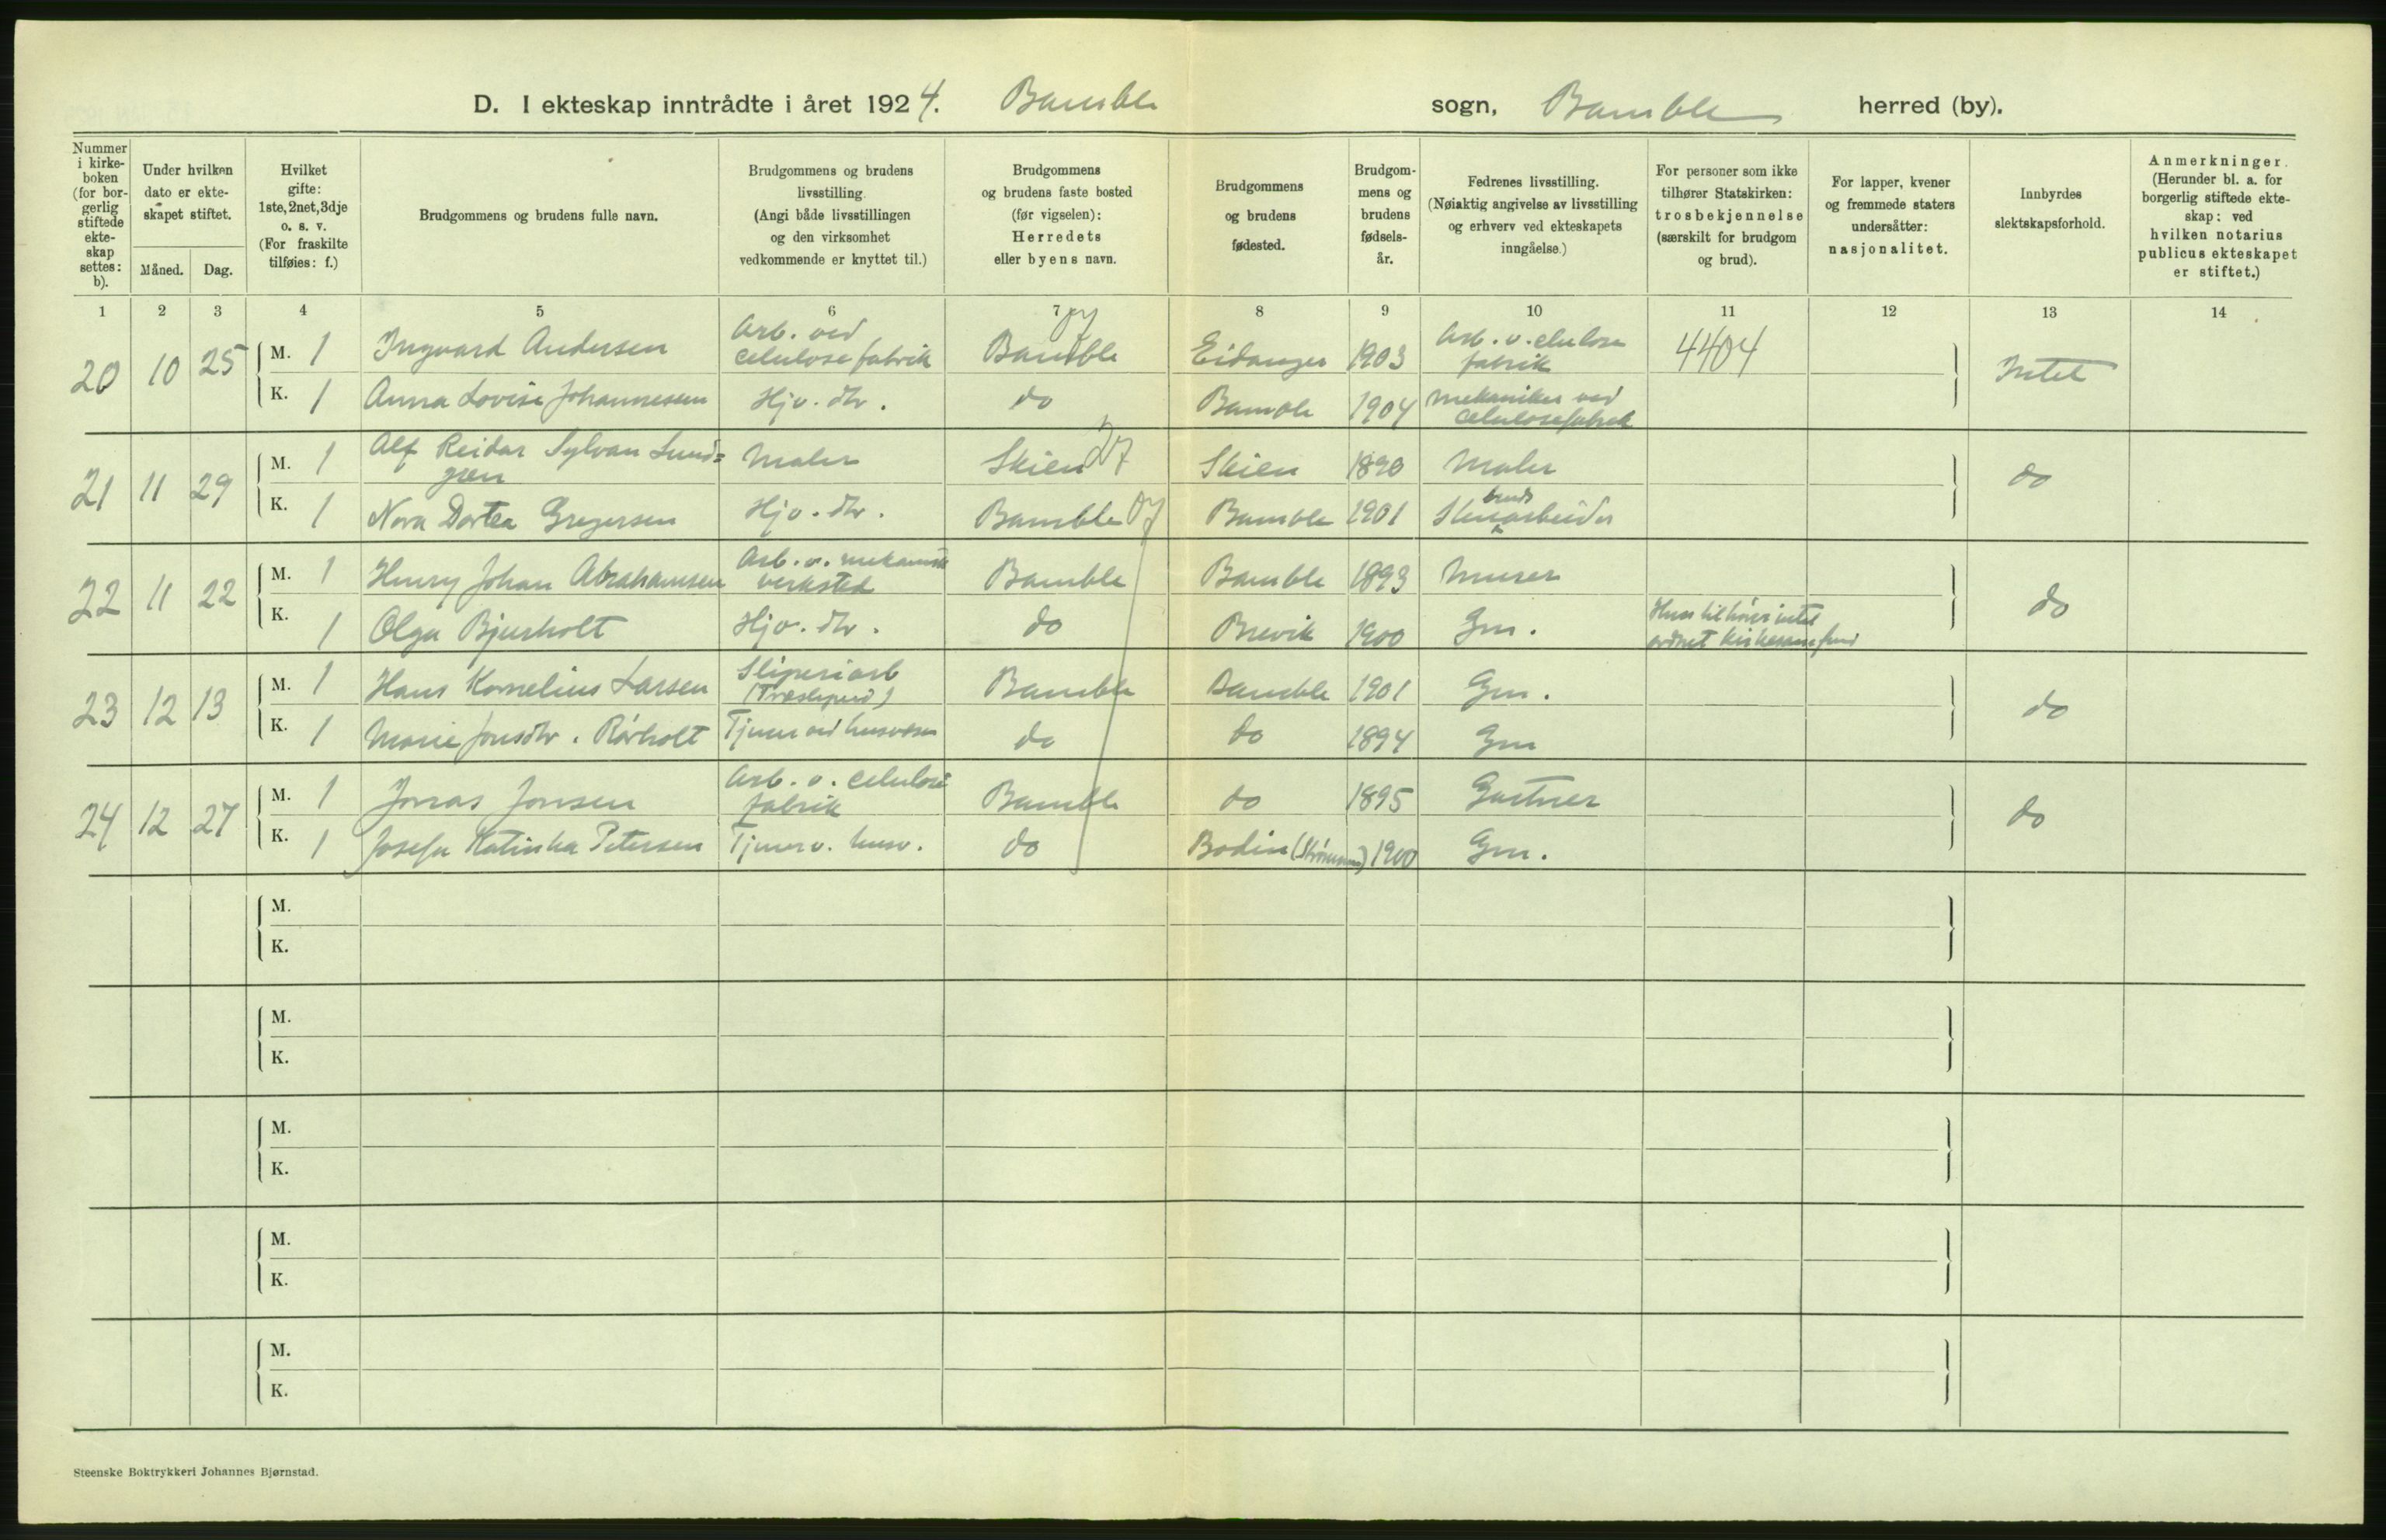 D. I ekteskap inntrådte i året 1924. Bamble sogn, Bamble herred (by).
Nummer i kirke- boken (for bor- gerlig stiftede ekte- skap settes: b).
Under hvilken dato er ekte- skapet stiftet.
Måned. Dag.
Hvilket gifte: 1ste, 2net, 3dje o. s. v. (For fraskilte tilføies: f.)
Brudgommens og brudens fulle navn.
Brudgommens og brudens livsstilling. (Angi både livsstillingen og den virksomhet vedkommende er knyttet til.)
Brudgommens og brudens faste bosted (før vigselen): Herredets eller byens navn.
Brudgommens og brudens fødested.
Brudgom- mens og brudens fødsels- år.
Fedrenes livsstilling. (Nøiaktig angivelse av livsstilling og erhverv ved ekteskapets inngåelse.)
For personer som ikke tilhører Statskirken: trosbekjennelse (særskilt for brudgom og brud).
For lapper, kvener og fremmede staters undersåtter: nasjonalitet.
Innbyrdes slektskapsforhold.
Anmerkninger. (Herunder bl. a. for borgerlig stiftede ekte- skap: ved hvilken notarius publicus ekteskapet er stiftet.)
1 2 3 4 5 6 7 8 9 10 11 12 13 14
20 10 25 M. 1 Ingvard Andersen Arb. ved celulosefabrik Bamble Eidanger 1903 Arb. v. celulose fabrik 4404 Intet
K. 1 Anna Lovise Johannessen Hjv. dtr. do Bamble 1904 Mekaniker ved celulosefabrik
21 11 29 M. 1 Alf Reidar Sylvan Lund= gren Maler Skien Skien 1890 Maler do
K. 1 Nora Dortea Gregersen Hjv. dtr. Bamble 07 Bamble 1901 Stenbruds arbeider
22 11 22 M. 1 Henry Johan Abrahamsen Arb. v. mekanisk verksted Bamble Bamble 1893 Murer do
K. 1 Olga Bjerkholt Hjv. dtr. do Brevik 1900 Gm. Hun tilhører intet ordnet kirkesamfund
23 12 13 M. 1 Hans Kornelius Larsen Sliperiarb (Træsliperi) Bamble Bamble 1901 Gm. do
K. 1 Marie Jonsdtr. Rørholt Tjener ved husvæsen do do 1894 Gm
24 12 27 M. 1 Jonas Jonsen Arb. v. celulose fabrik Bamble do 1895 Gartner do
K. 1 Josefa Katinka Petersen Tjener v. husv. do Bodin 1900 Gm.
M.
K.
M.
K.
M.
K.
M.
K.
M.
K.
Steenske Boktrykkeri Johannes Bjørnstad.